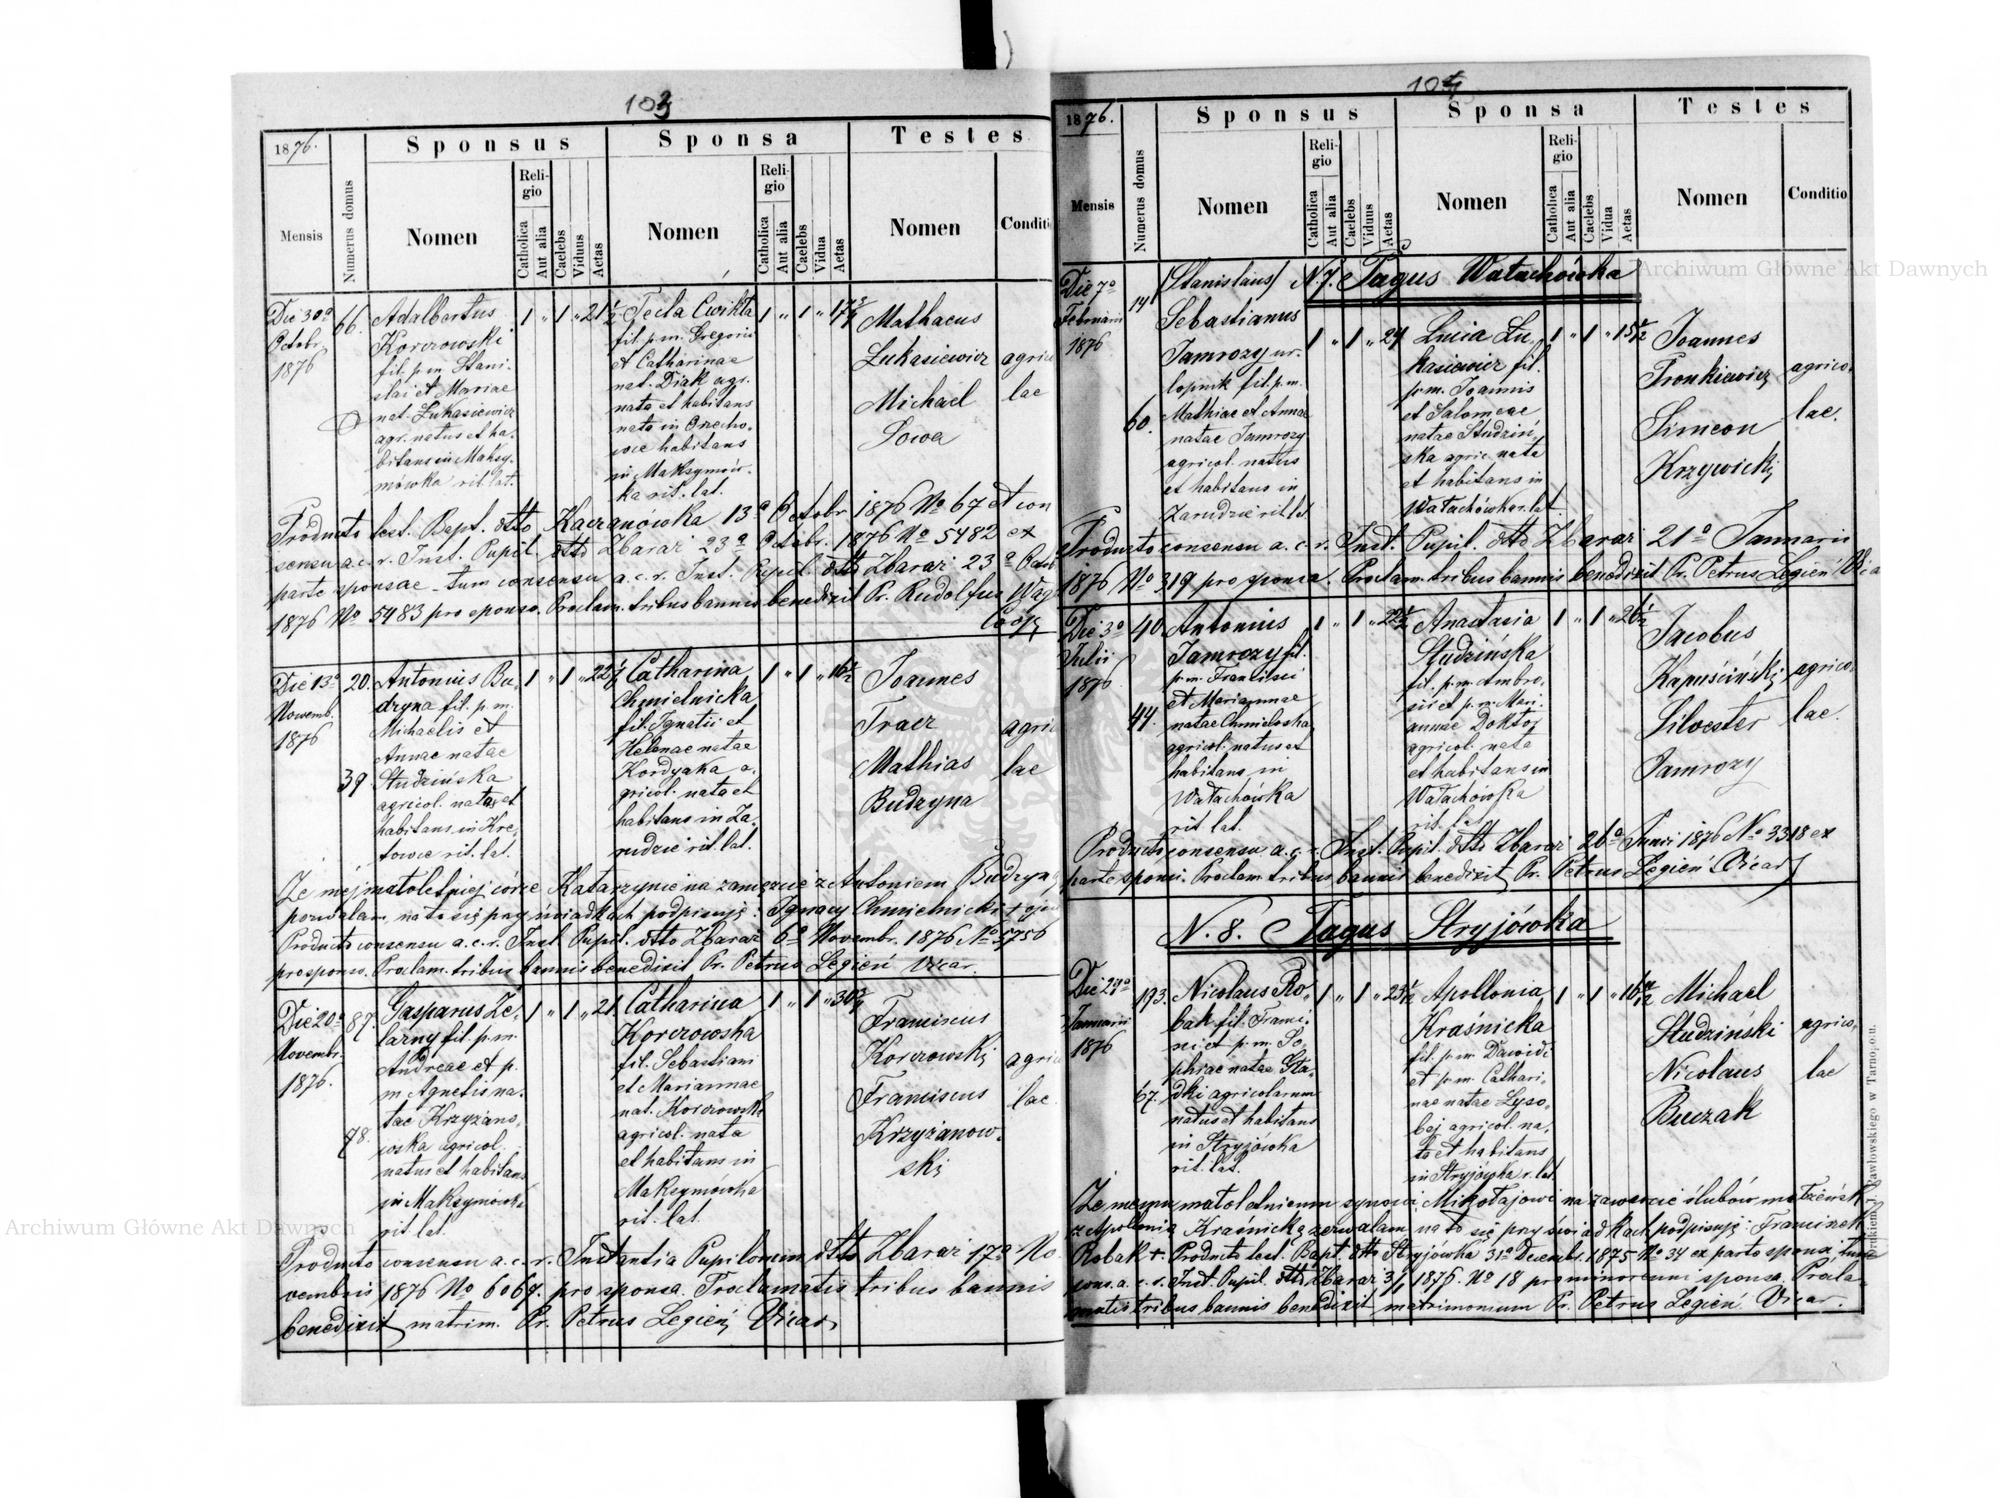 103
1876.
Sponsus
Sponsa
Testes
Mensis
Numerus domus
Nomen
Religio
Catholica
Aut alia
Caelebs
Viduus
Aetas
Nomen
Religio
Catholica
Aut alia
Caelebs
Vidua
Aetas
Nomen
Conditio
Die 30a
Octobr.
1876
66.
Adalbertus
Korczowski
fil. p. m. Stani-
slai et Mariae
nat. Łukasiewicz
agr. natus et ha-
bitans in Maksy-
mówka rit. lat.
1 " 1 " 21 1/2
Tecla Ćwikła
fil. p. m. Gregorii
et Catharinae
nat. Diak agr.
nata et habitans
nata in Orzecho-
wce habitans
in Maksymów-
ka rit. lat.
1 " 1 " 17 3/4
Mathaeus
Łukasiewicz
Michael
Sowa
agrico
lae
Producto test. Bapt. dtto Kaczanówka 13a Octobr 1876 No 67 et con
sensu a. c. r. Inst. Pupil. dtto Zbaraż 23a Octobr. 1876 No 5482 ex
parte sponsae tum consensu a. c. r. Inst. Pupil. dtto Zbaraż 23a Octob
1876 No 5483 pro sponso. Proclam. tribus bannis benedixit Pr. Rudolfus
Coop.
Die 13a
Novemb.
1876
20.
39
Antonius Bu-
dzyna fil. p. m.
Michaelis et
Annae natae
Studzińska
agricol. natus et
habitans in Kre-
towce rit. lat.
1 " 1 " 22 1/2
Catharina
Chmielnicka
fil. Ignatii et
Helenae natae
Kordyaka a-
gricol. nata et
habitans in Za-
rudzie rit. lat.
1 " 1 " 16 1/2
Joannes
Tracz
Mathias
Budzyna
agrico
lae
Że mojej małoletniej córce Katarzynie na zamęzcie z Antoniem Budzyną
pozwalam, na to się przy świadkach podpisuję: Ignacy Chmielnicki + ojciec
Producto consensu a. c. r. Inst Pupil. dtto Zbaraż 6a Novembr. 1876 No 5756
pro sponso. Proclam. tribus bannis benedixit Pr. Petrus Legień Vicar.
Die 20a
Novembr.
1876.
87.
78.
Gasparus Że-
larny fil. p. m.
Andreae et p.
m. Agnetis na-
tae Krzyżano-
wska agricol.
natus et habitans
in Maksymówka
rit. lat.
1 " 1 " 21
Catharina
Korczowska
fil. Sebastiani
et Mariannae
nat. Korczowska
agricol. nata
et habitans in
Maksymówka
rit. lat.
1 " 1 " 30 3/4
Franciscus
Korczowski
Franciscus
Krzyżanow-
ski
agrico
lae
Producto consensu a. c. r. Instantia Pupilorum dtto Zbaraż 17a No
vembris 1876 No 6069. pro sponsa. Proclamatis tribus bannis
benedixit matrim. Pr. Petrus Legień Vicar
104
1876.
Sponsus
Sponsa
Testes
Mensis
Numerus domus
Nomen
Religio
Catholica
Aut alia
Caelebs
Viduus
Aetas
Nomen
Religio
Catholica
Aut alia
Caelebs
Vidua
Aetas
Nomen
Conditio
N. 7. Pagus Wałachówka
Die 7a
Februarii
1876
14
60.
(Stanislaus)
Sebastianus
Jamrozy ur-
lopnik fil. p. m.
Mathiae et Annae
natae Jamrozy
agricol. natus
et habitans in
Zarudzie rit. lat.
1 " 1 " 24
Lucia Łu-
kasiewicz fil.
p. m. Joannis
et Salomeae
natae Studziń-
ska agric. nata
et habitans in
Wałachówka r. lat.
1 " 1 " 15 1/2
Joannes
Fronkiewicz
Simeon
Krzywicki
agrico-
lae.
Producto consensu a. c. r. Inst. Pupil. dtto Zbaraż 21a Januarii
1876 No 319 pro sponsa. Proclam. tribus bannis benedixit Pr. Petrus Legień
Die 3a
Julii
1876
40
44.
Antonius
Jamrozy fil.
p. m. Francisci
et Mariannae
natae Chmielecka
agricol. natus et
habitans in
Wałachówka
rit. lat.
1 " 1 " 22 1/2
Anastasia
Studzińska
fil. p. m. Ambro-
sii et p. m. Mari-
annae Doktor
agricol. nata
et habitans in
Wałachówka
rit. lat.
1 " 1 " 26 1/2
Jacobus
Kapuściński
Silvester
Jamrozy
agrico-
lae.
Producto consensu a. c. r. Inst. Pupil. dtto Zbaraż 26a Junii 1876 No 3318 ex
parte sponsi. Proclam. tribus bannis benedixit Pr. Petrus Legień Vicar
N. 8. Pagus Stryjówka
Die 29a
Januarii
1876
193.
67.
Nicolaus Ro-
bak fil. Franci-
sci et p. m. So-
phiae natae Gła-
dki agricolarum
natus et habitans
in Stryjówka
rit. lat.
1 " 1 " 23 1/12
Apollonia
Kraśnicka
fil. p. m. Dawidi
et p. m. Cathari-
nae natae Łyso-
bej agricol. na-
ta et habitans
in Stryjówka r. lat.
1 " 1 "
Michael
Studziński
Nicolaus
Buczak
agrico-
lae
Że mejmu małoletniemu synowi Mikołajowi na zawarcie ślubów małżeńsk
z Apolonią Kraśnicką zezwalam, na to się przy świadkach podpisuję: Franciszek
Robak +. Producto test. Bapt. dtto Stryjówka 31a Decemb. 1875 No 34 ex parte sponsi tum
cons. a. c. r. Inst. Pupil. dtto Zbaraż 3/1 1876. No 18 pro minorenni sponsa. Procla-
matis tribus bannis benedixit matrimonium Pr. Petrus Legień Vicar.
Drukiem J. Pawłowskiego w Tarnopolu.
Archiwum Główne Akt Dawnych
Archiwum Główne Akt Dawnych